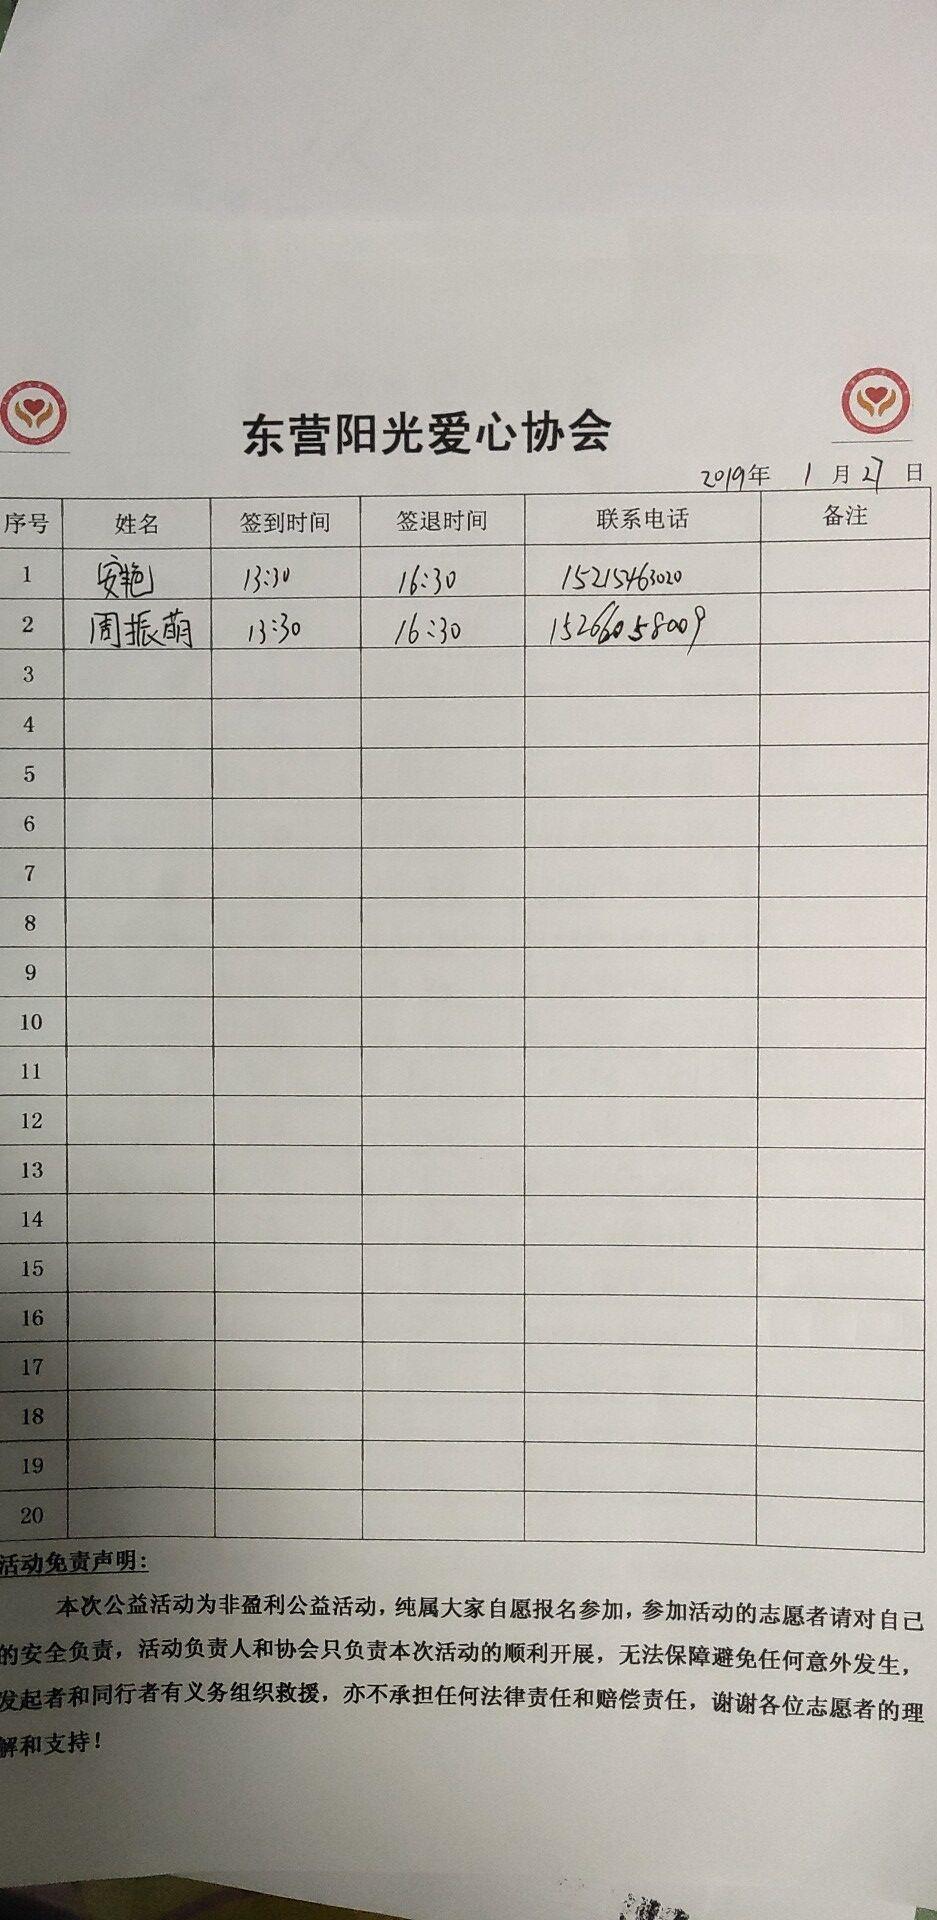 东营阳光爱心协会
2019年 1月27日
序号 姓名 签到时间 签退时间 联系电话 备注
1 安艳 13:30 16:30 15215463020
2 周振萌 13:30 16:30 15266058009
3
4
5
6
7
8
9
10
11
12
13
14
15
16
17
18
19
20
活动免责声明:
本次公益活动为非盈利公益活动，纯属大家自愿报名参加，参加活动的志愿者请对自己
的安全负责，活动负责人和协会只负责本次活动的顺利开展，无法保障避免任何意外发生，
发起者和同行者有义务组织救援，亦不承担任何法律责任和赔偿责任，谢谢各位志愿者的理
解和支持！